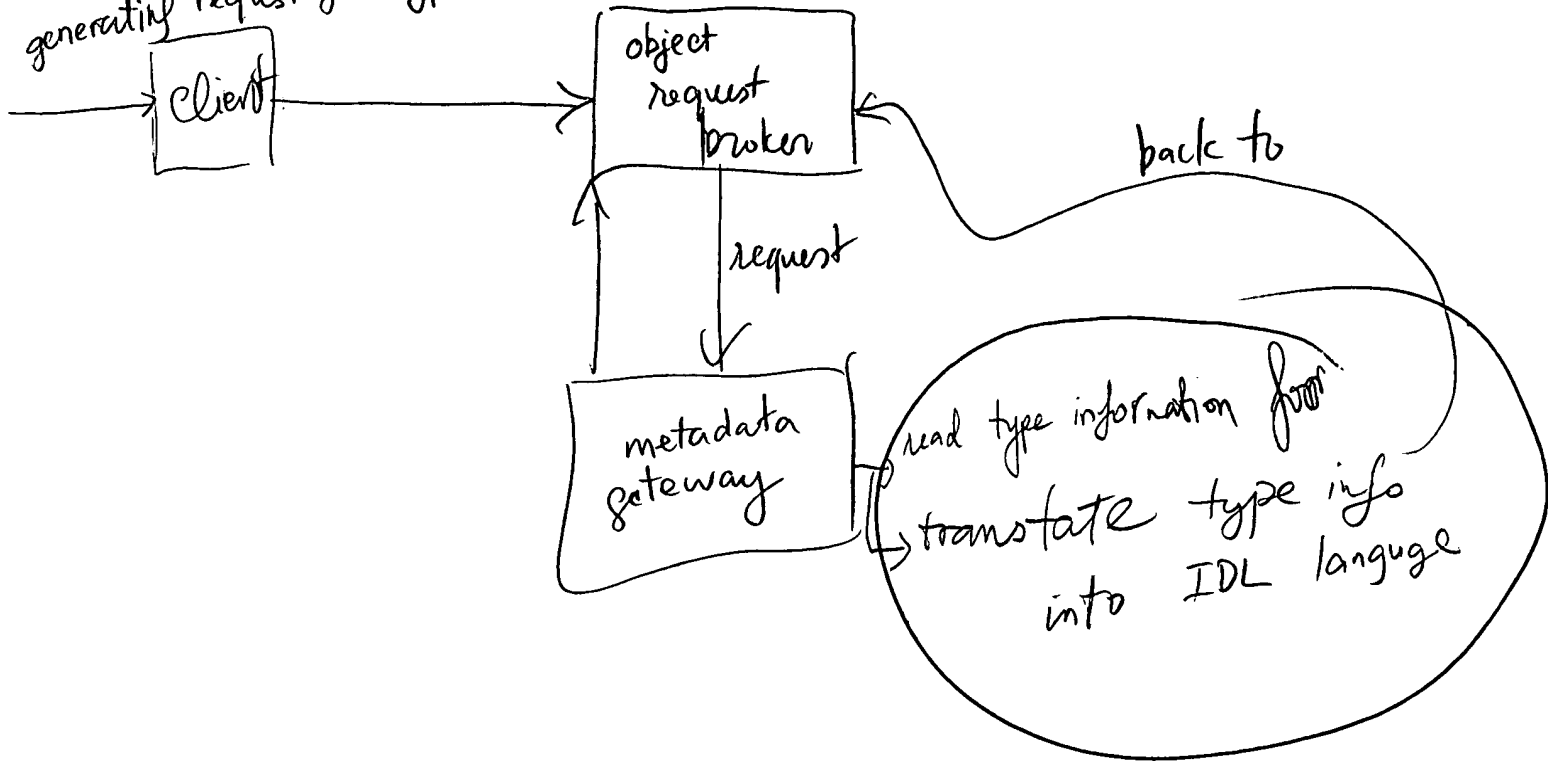 generating request
client
object
request
broker
back to
request
metadata
gateway
read type information from
translate type info
into IDL languge